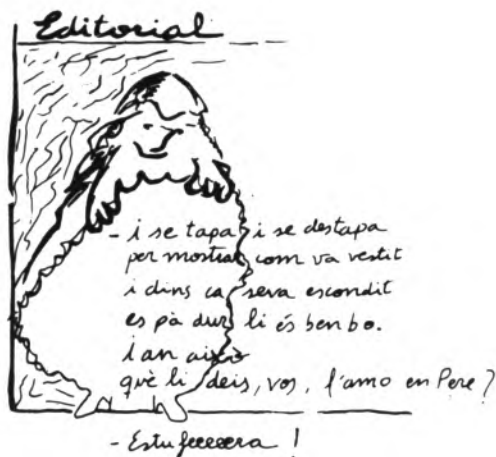 Editorial
- i se tapa i se destapa
per mostrar com va vestit
i dins ca seva escondit
es pà dur li és ben bo.
i an això
què li deis, vos, l'amo en Pere?
- Estufeeeera!